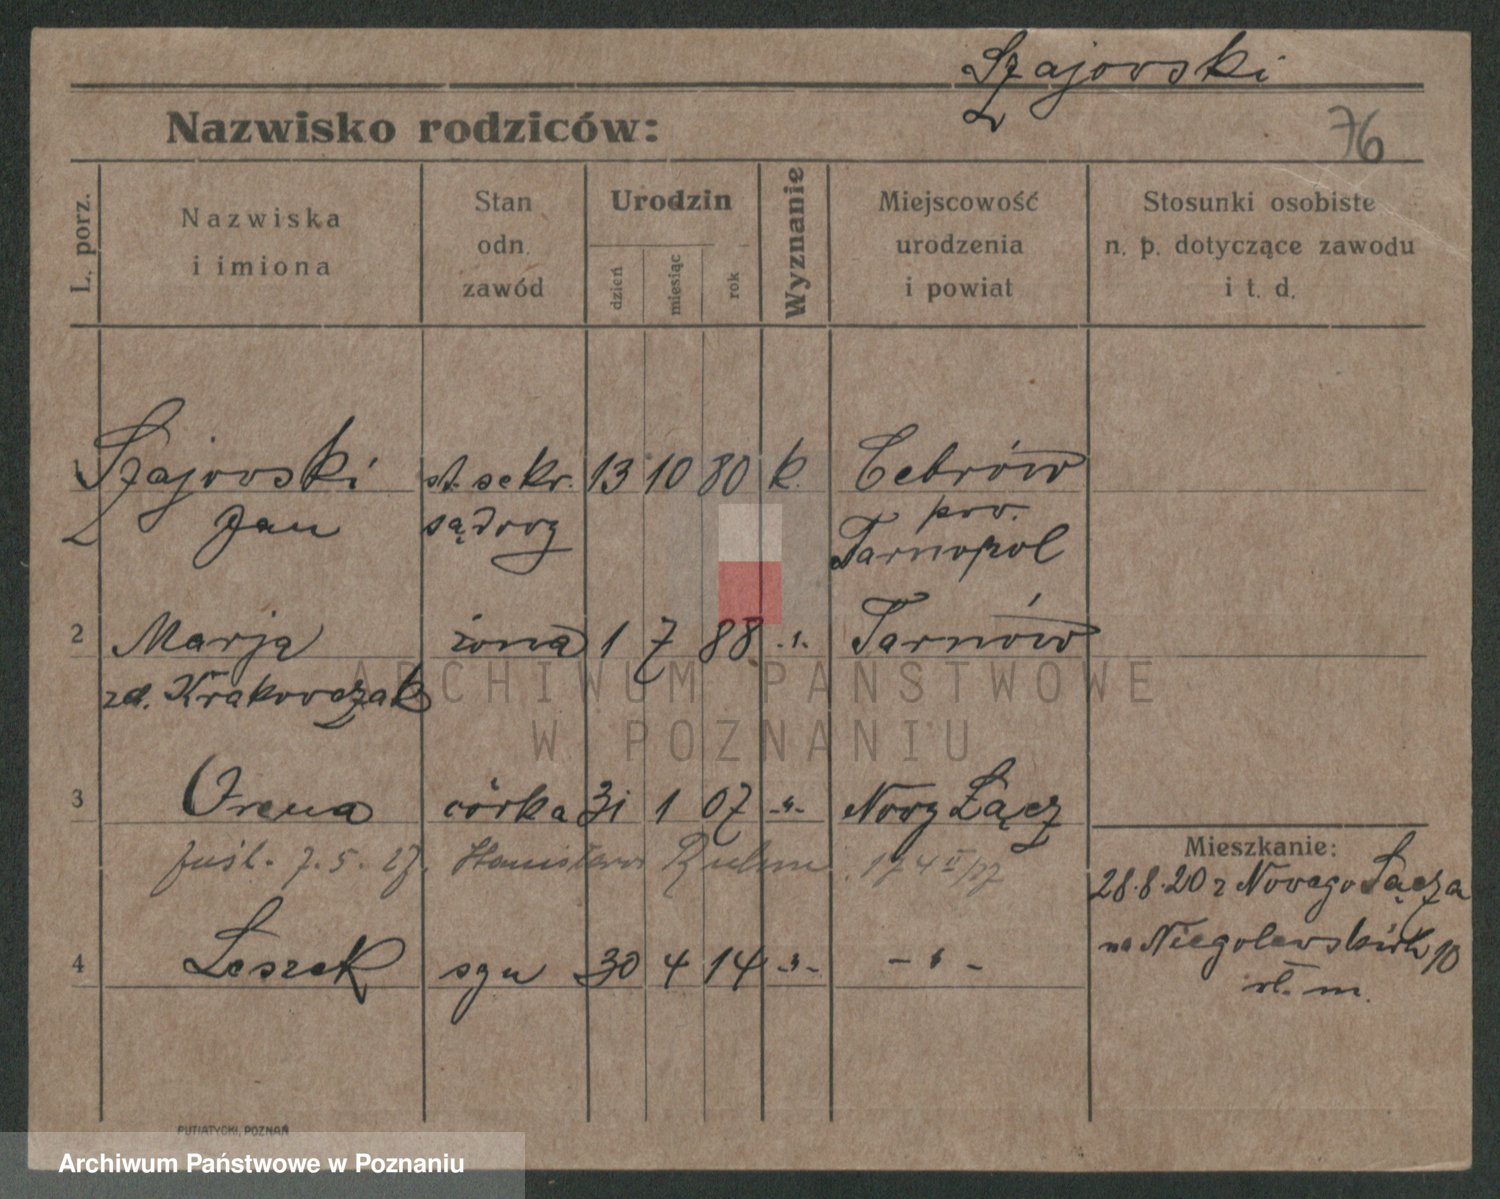 Szajowski
Nazwisko rodziców:
76
L. porz.
Nazwiska
i imiona
Stan
odn.
zawód
Urodzin
dzień
miesiąc
rok
Wyznanie
Miejscowość
urodzenia
i powiat
Stosunki osobiste
n. p. dotyczące zawodu
i t. d.
1 Szajowski st. sekr. 13 10 80 k. Cebrów
Jan sądowy pow.
Tarnopol
2 Marja żona 1 7 88 -"- Tarnów
zd. Krakowczak
3 Irena córka 31 1 07 -"- Nowy Sącz
7. 5. 27. Stanisław
4 Leszek syn 30 4 14 -"- -"-
Mieszkanie:
28.8.20 z Nowego Sącza
na Niegolewskich 10
m.
ARCHIWUM PAŃSTWOWE
W POZNANIU
PUTIATYCKI, POZNAŃ
Archiwum Państwowe w Poznaniu